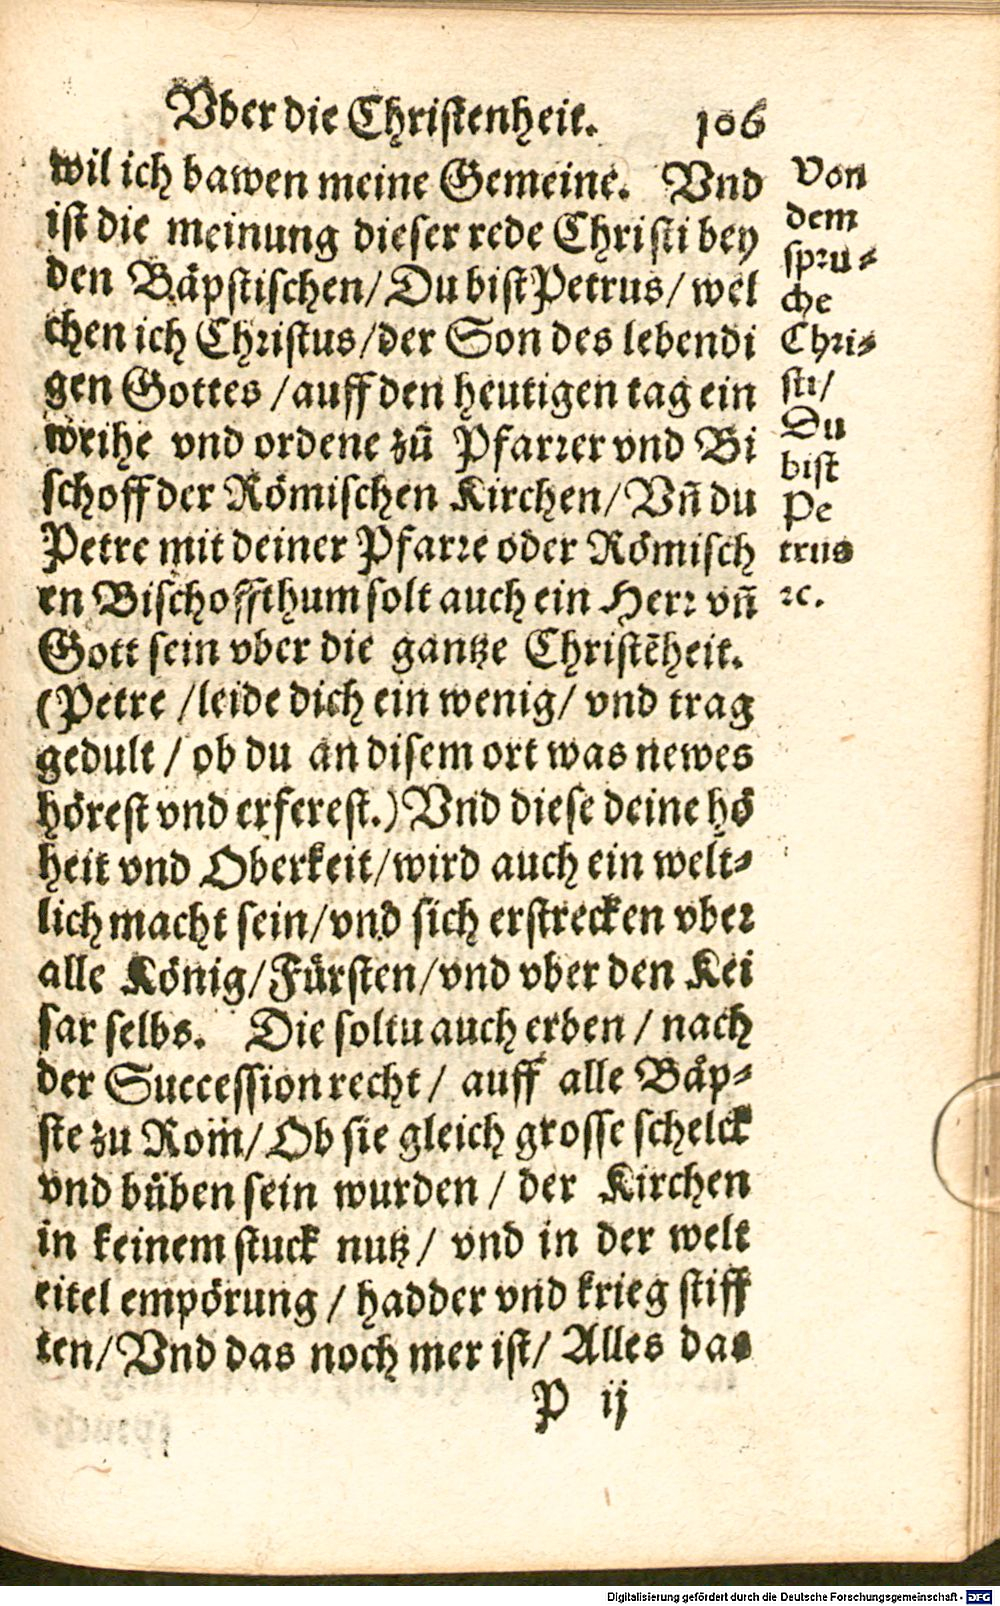 Vber die Christenheit. 106
wil ich bawen meine Gemeine. Vnd
ist die meinung dieser rede Christi bey
den Bäpstischen/ Du bist Petrus/ wel
chen ich Christus/ der Son des lebendi
gen Gottes / auff den heutigen tag ein
weihe vnd ordene zū Pfarrer vnd Bi
schoff der Römischen Kirchen/ Vñ du
Petre mit deiner Pfarre oder Römisch
en Bischoffthum solt auch ein Herr vñ
Gott sein vber die gantze Christēheit.
(Petre / leide dich ein wenig/ vnd trag
gedult / ob du an disem ort was newes
hörest vnd erferest.) Vnd diese deine hö
heit vnd Oberkeit/ wird auch ein welt-
lich macht sein/ vnd sich erstrecken vber
alle König/ Fürsten/ vnd vber den Kei
sar selbs. Die soltu auch erben / nach
der Succession recht / auff alle Bäp-
ste zu Rom/ Ob sie gleich grosse schelck
vnd büben sein wurden / der Kirchen
in keinem stuck nutz / vnd in der welt
eitel empörung / hadder vnd krieg stiff
ten/ Vnd das noch mer ist/ Alles das
P ij
Von
dem
spru-
che
Chri-
sti/
Du
bist
Pe
trus
ꝛc.
Digitalisierung gefördert durch die Deutsche Forschungsgemeinschaft - DFG